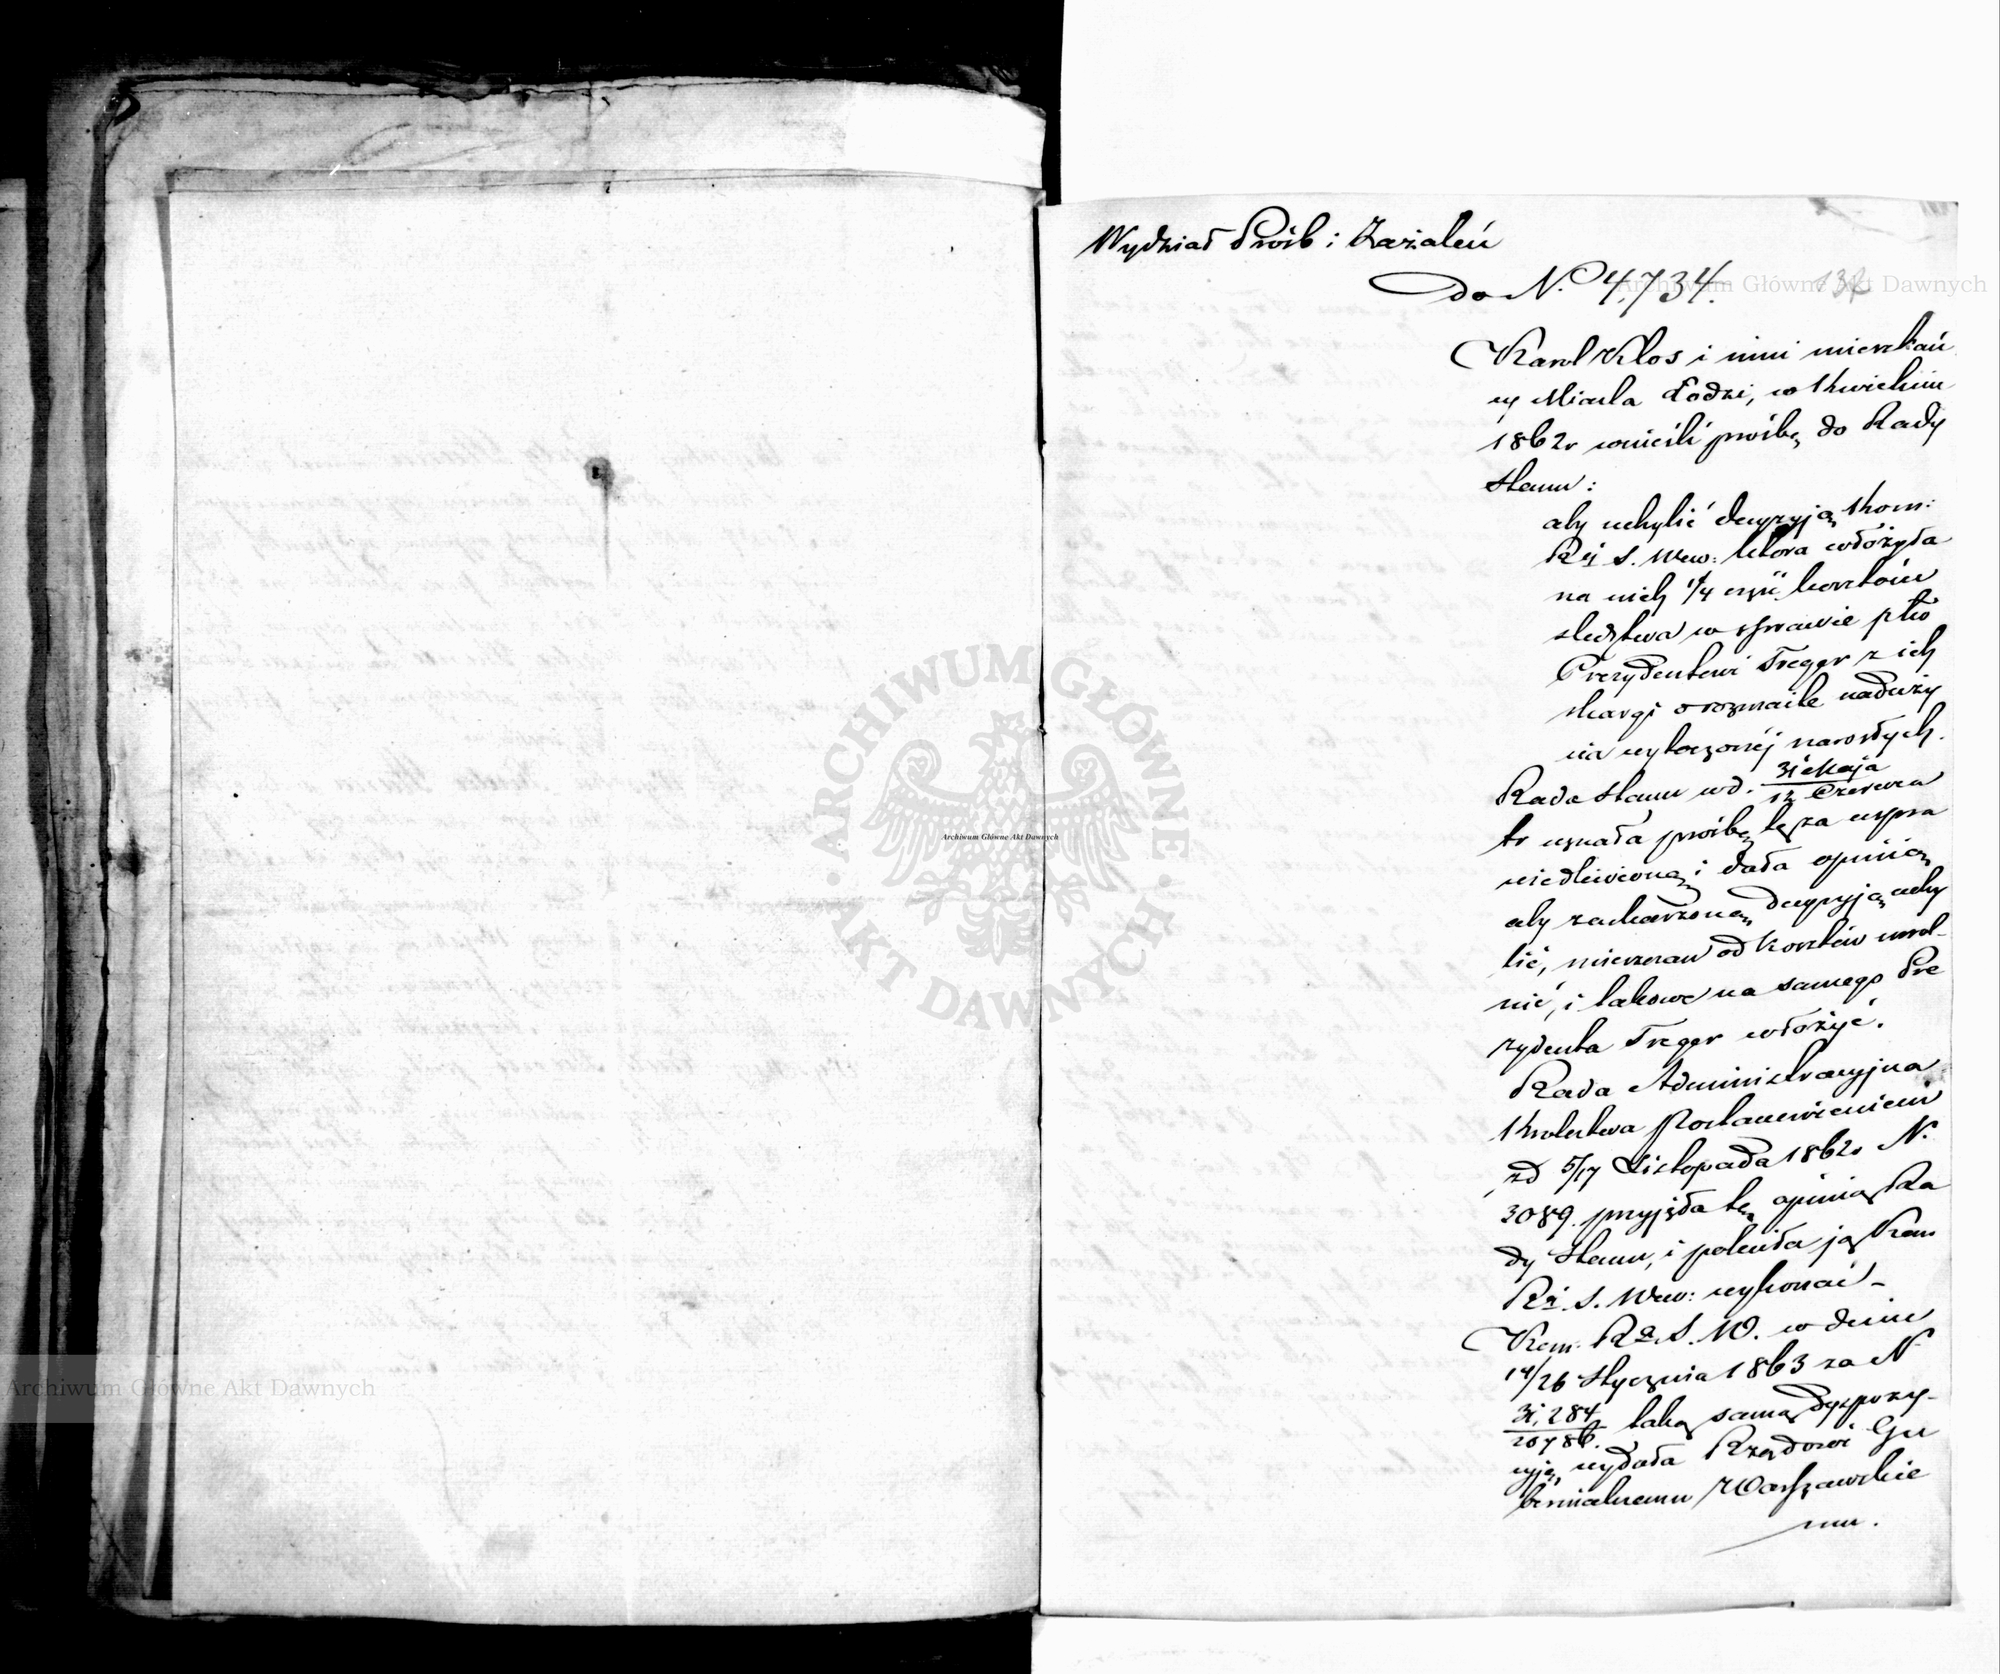 Wydział Próśb i Zażaleń
do N. 4,734.
132
Karol Kłos i inni mieszkań
cy Miasta Łodzi, w Kwietniu
1862r wnieśli prośbę do Rady
Stanu:
aby uchylić decyzyją Kom:
Rz S. Wew: która włożyła
na nich 1/4 część kosztów
śledztwa w sprawie p-ko
Prezydentowi Treger z ich
skargi o rozmaite naduży
cia wytoczonej narosłych.
Rada Stanu w d. 31 Maja / 12 Czerwca
tr uznała prośbę tę za uspra
wiedliwioną i dała opinią
aby zaskarżoną decyzyją uchy
lić, mieszczan od kosztów uwol-
nić, i takowe na samego Pre
zydenta Treger włożyć.
Rada Administracyjna
Królestwa Postanowieniem
zd 5/17 Listopada 1862r N.
3089. przyjęła tę opinią Ra
dy Stanu, i poleciła ją Kom
Rz. S. Wew: wykonać -
Kom: Rz. S. W. w dniu
14/26 Stycznia 1863 za N
31,284 / 20786. taką samą dyspozy-
cyją wydała Rządowi Gu
bernialnemu Warszawskie
mu.
Archiwum Główne Akt Dawnych
ARCHIWUM GŁÓWNE
AKT DAWNYCH
Archiwum Główne Akt Dawnych
Archiwum Główne Akt Dawnych